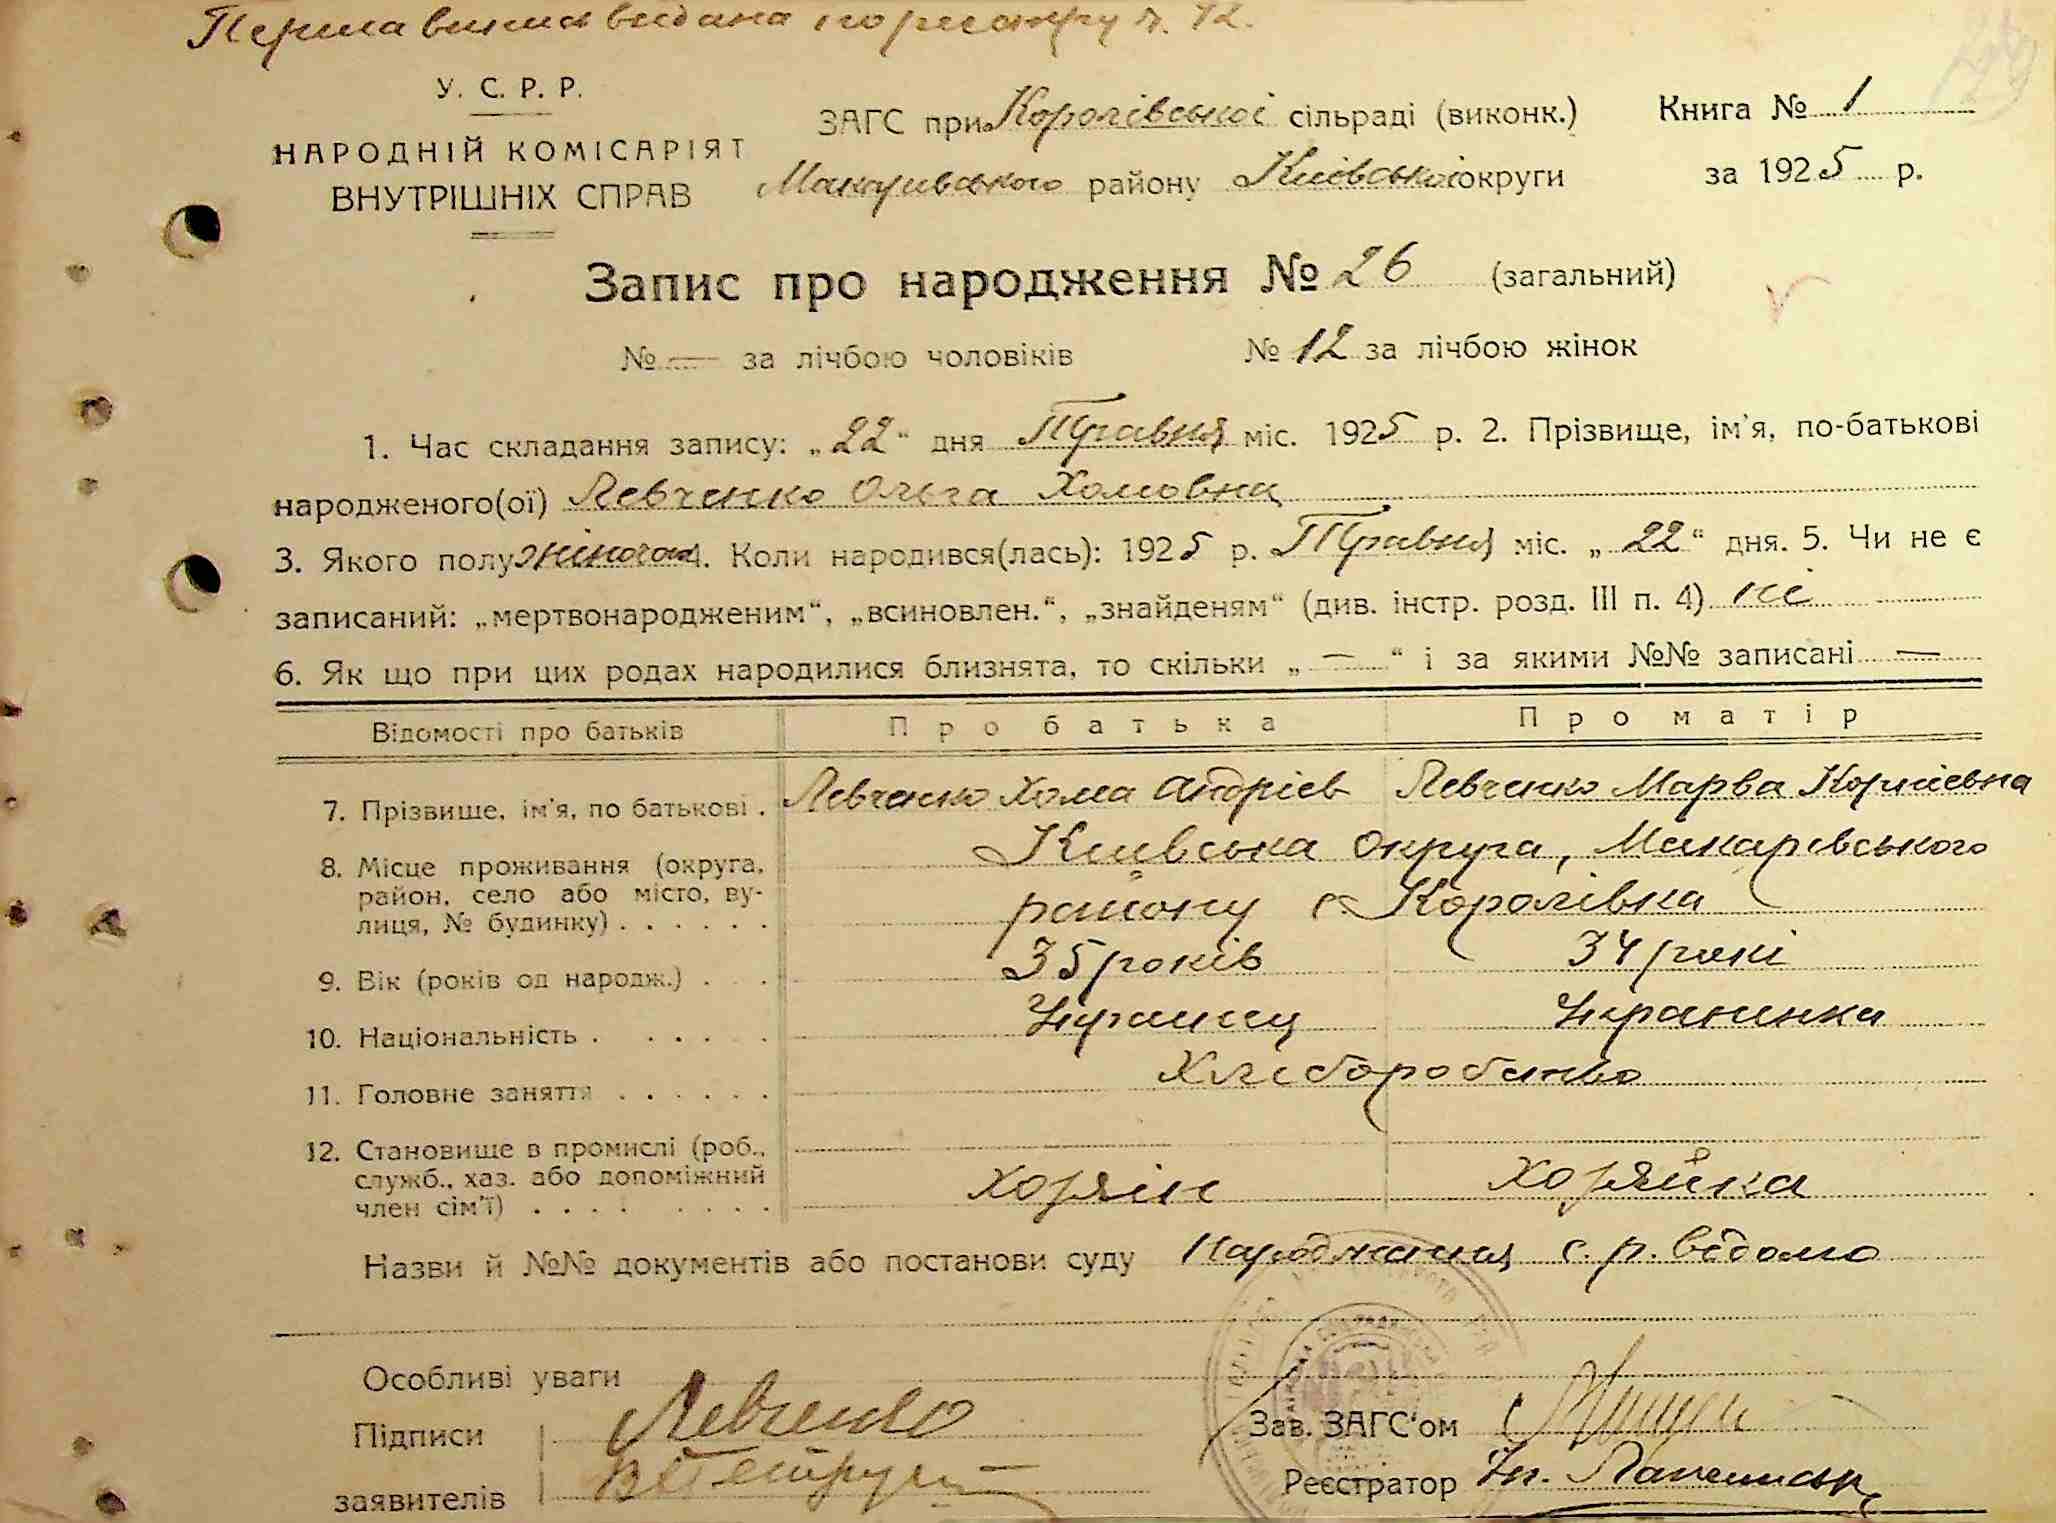 Перша випись видана по реєстру ч. 12.
У. С. Р. Р.
НАРОДНІЙ КОМІСАРІЯТ
ВНУТРІШНІХ СПРАВ
ЗАГС при Королівської сільраді (виконк.)
Макарівського району Київської округи
Книга № 1
за 1925 р.
Запис про народження № 26 (загальний)
№ — за лічбою чоловіків № 12 за лічбою жінок
1. Час складання запису: „22“ дня Травня міс. 1925 р. 2. Прізвище, ім'я, по-батькові
народженого(ої) Левченко Ольга Хомовна
3. Якого полу жіночого 4. Коли народився(лась): 1925 р. Травня міс. „22“ дня. 5. Чи не є
записаний: „мертвонародженим“, „всиновлен.“, „знайденям“ (див. інстр. розд. III п. 4) ні
6. Як що при цих родах народилися близнята, то скільки „ — “ і за якими №№ записані —
Відомості про батьків Про батька Про матір
7. Прізвище, ім'я, по батькові . Левченко Хома Андріев Левченко Марва Корнієвна
8. Місце проживання (округа, район, село або місто, вулиця, № будинку) . . . . . . Київська округа, Макарівського
району с. Королівка
9. Вік (років од народж.) . . . 35 років 34 роки
10. Національність . . . . . Українец Украинка
11. Головне заняття . . . . . . Хлеборобство
12. Становище в промислі (роб., служб., хаз. або допоміжний член сім'ї) . . . . . . . . Хозяін Хозяйка
Назви й №№ документів або постанови суду Народження с. р. відомо
Особливі уваги
Підписи
заявителів
Левченко
Зав. ЗАГС'ом
Реєстратор